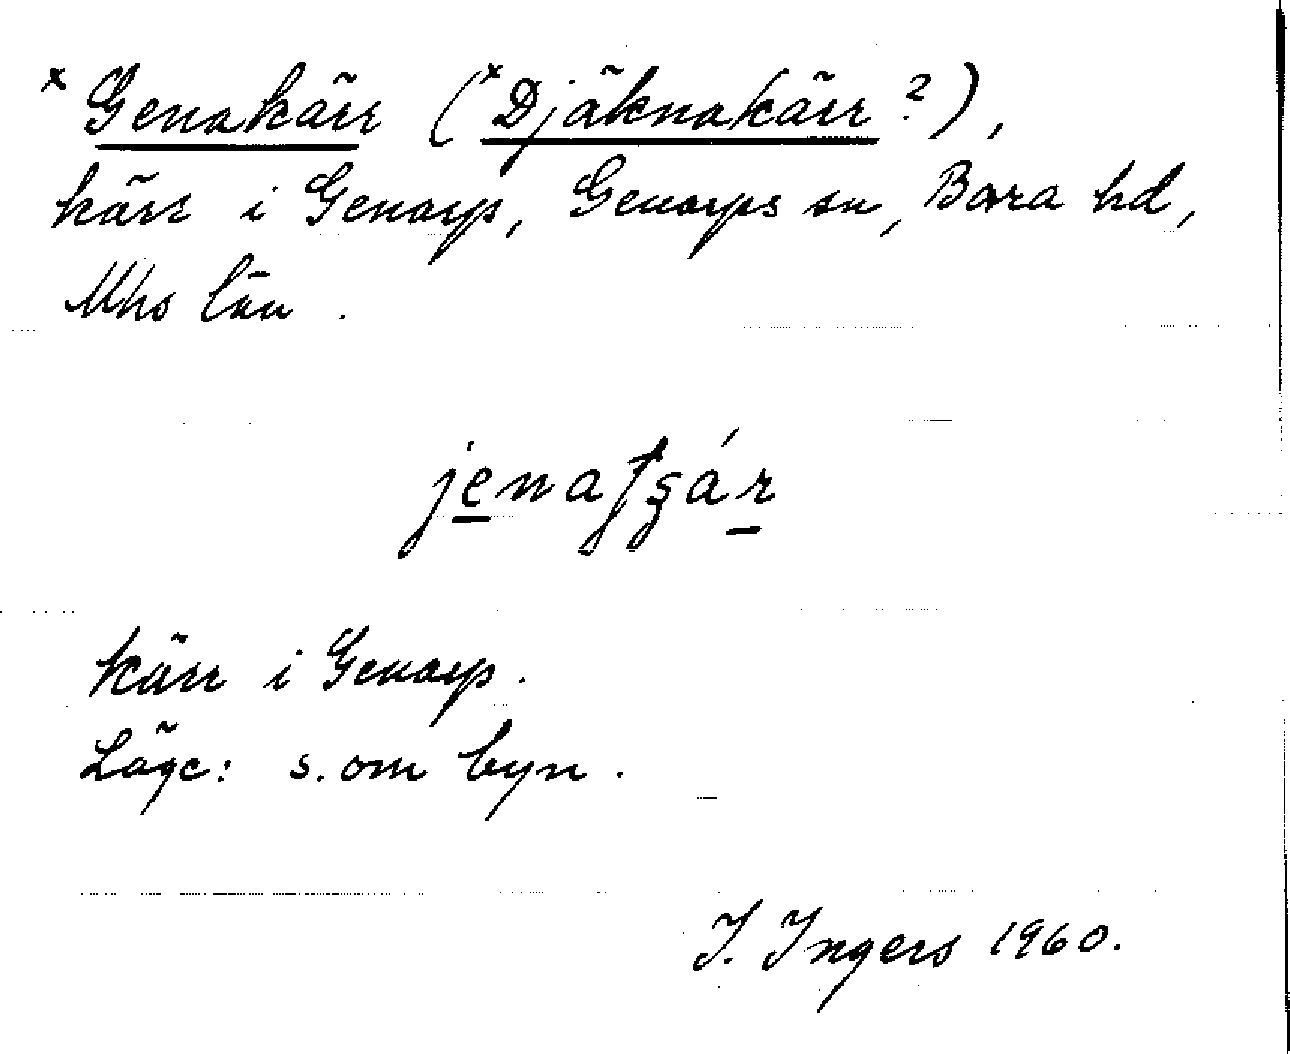 x Genakärr (x Djäknakärr?),
kärr i Genarp, Genarps sn, Bara hd,
Mhs län.
kärr i Genarp.
Läge: s. om byn.
I. Ingers 1960.